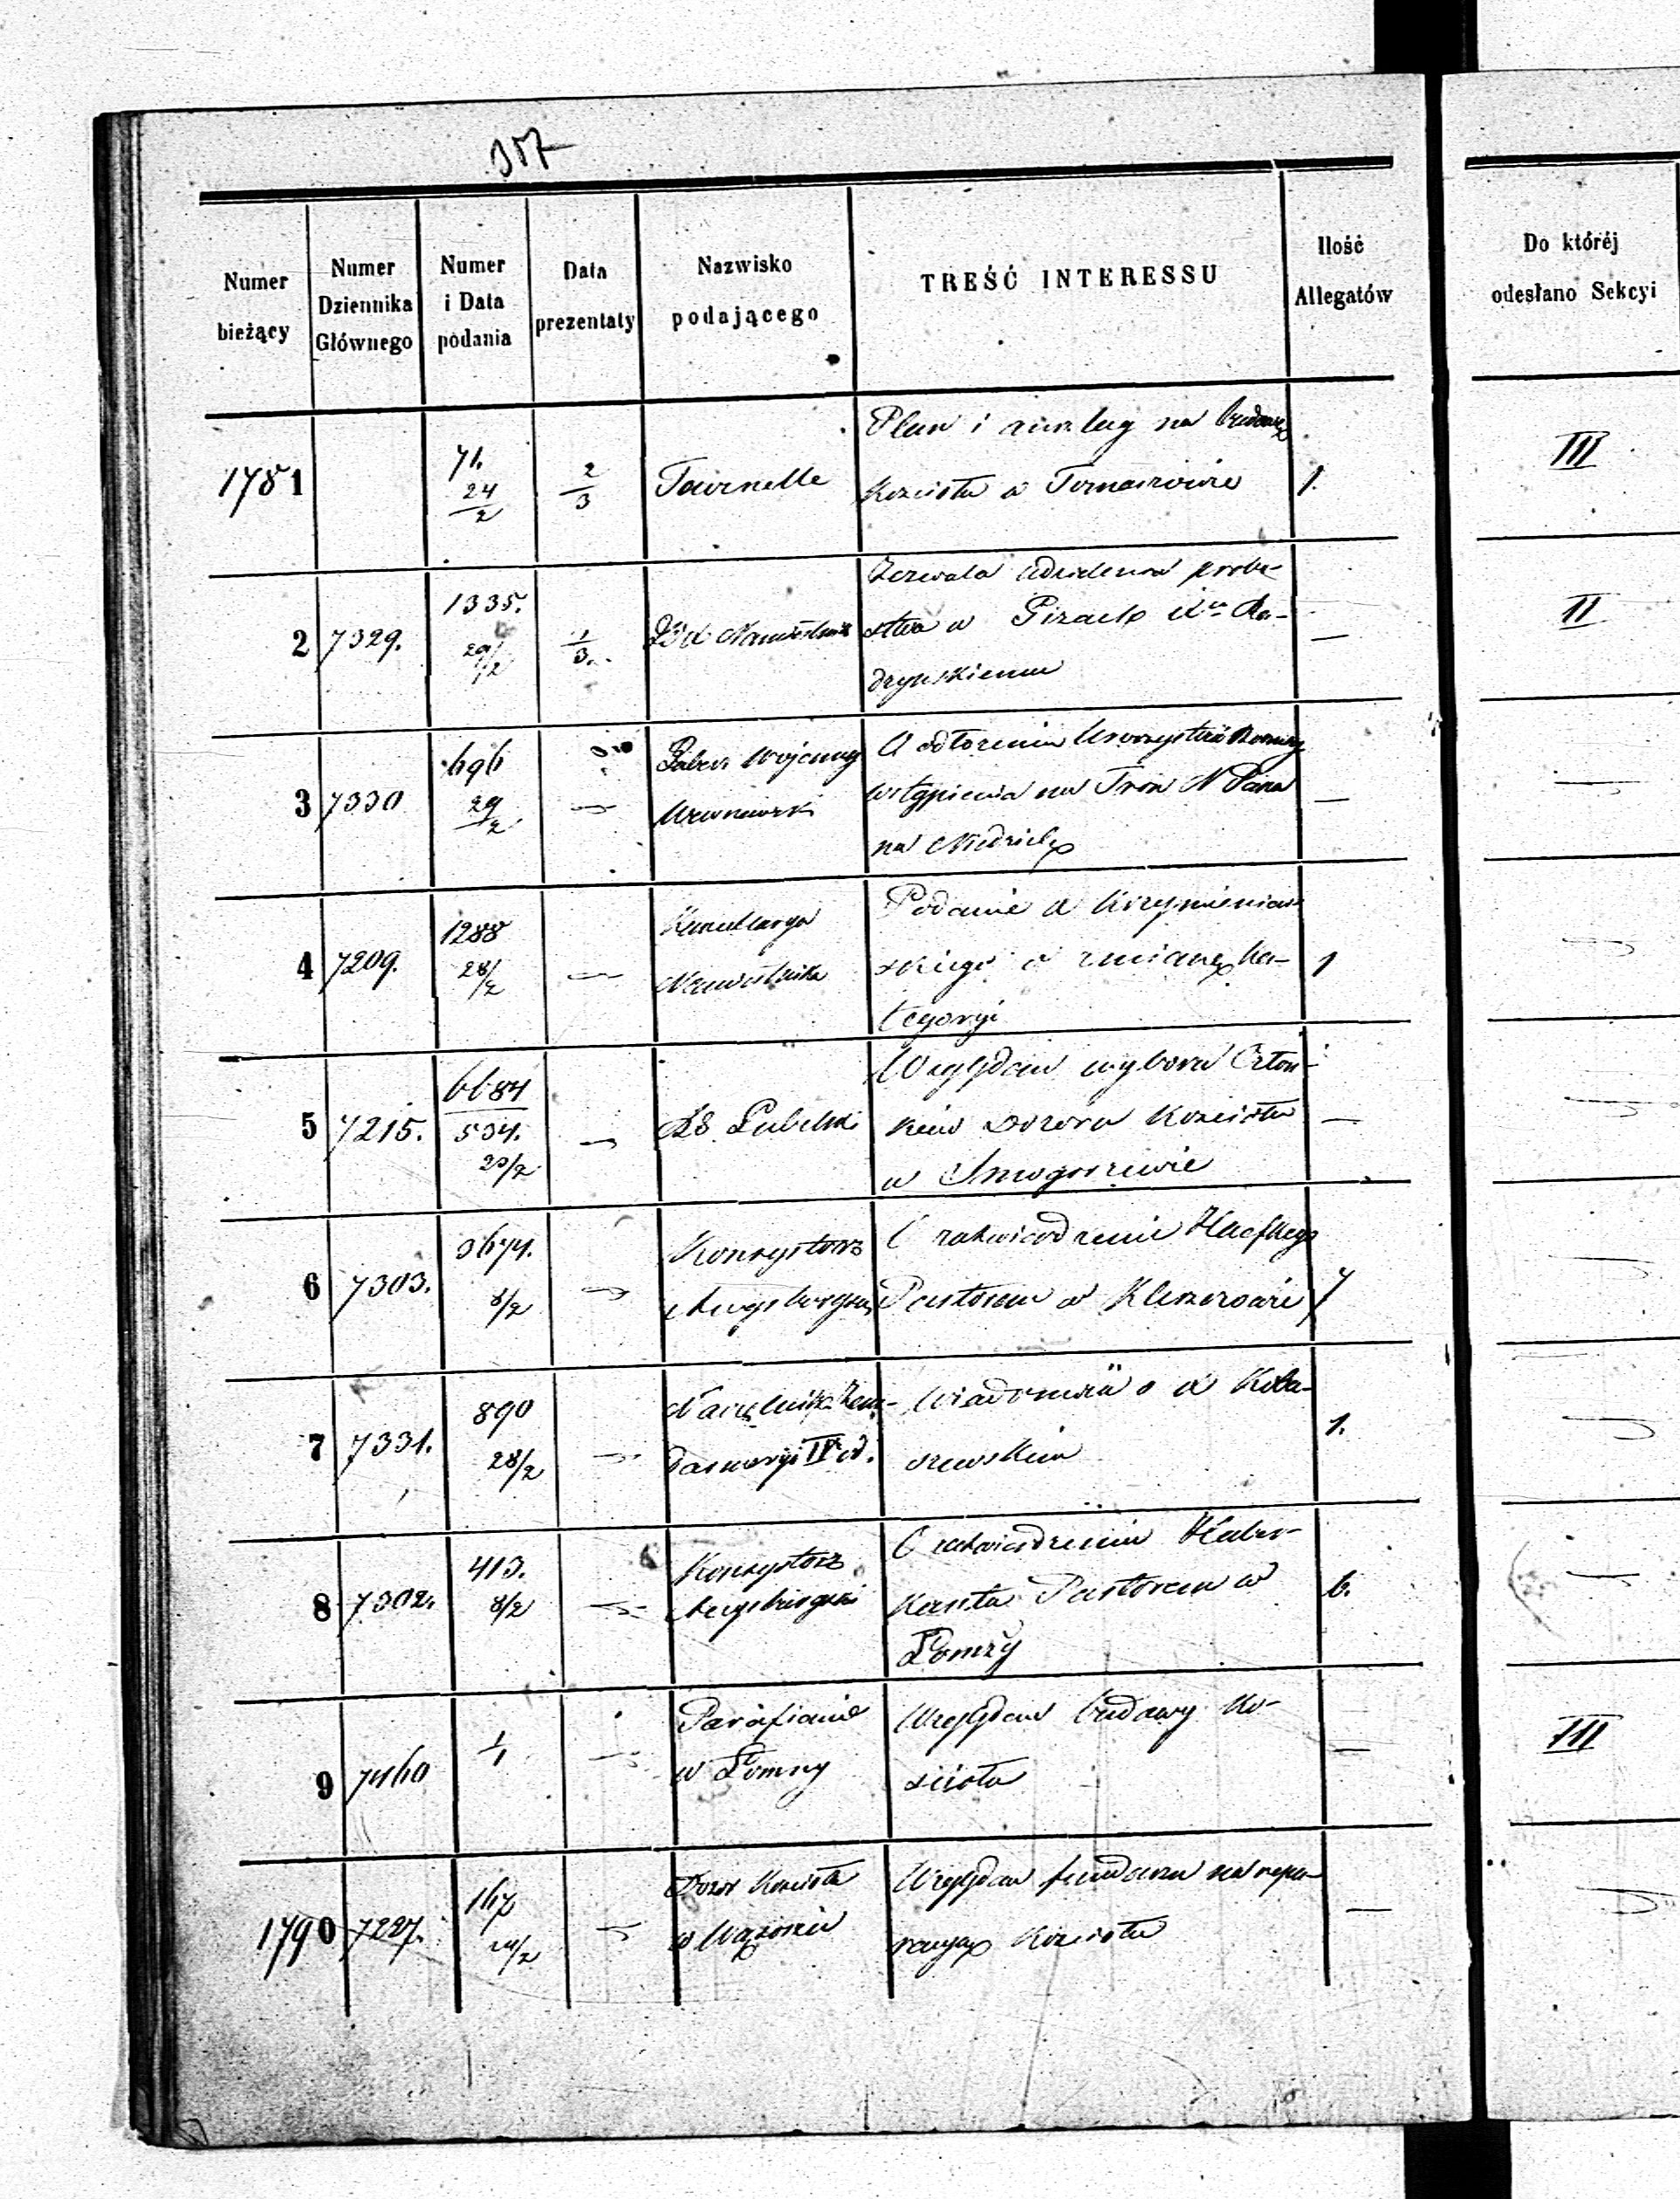 357
Numer bieżący
Numer Dziennika Głównego
Numer i Data podania
Data prezentaty
Nazwisko podającego
TREŚĆ INTERESSU
Ilość Allegatów
Do któréj odesłano Sekcyi
1781
71. 24/2
2/3
Tournelle
Plan i na budowę
Kościoła w Tomaszowie
1.
III
2
7329.
1335. 29/2
1/3
Namiestnik
Zezwala udzielenia probo-
stwa w
drzyńskiemu
—
II
3
7330
696 29/2
Wojenny
O odłożeniu Uroczystości
wstąpienia na Tron N Pana
na Niedzielę
—
4
7209.
1288 28/2
Kancellarya
Namiestnika
Podanie X
skiego o zmianę Ka-
tegoryi
1
5
7215.
6684 534. 20/2
RG Lubelski
Względem wyboru Człon-
ków Dozoru Kościoła
w Smogorzewie
—
6
7303.
3674. 8/2
Konsystorz
Augsburgski
O zatwierdzenie
Pastorem w Kleszczowie
7
7
7331.
890 28/2
Naczelnik Żan-
darmeryi IV od.
Wiadomość o X Kola-
szewskim
1.
8
7302.
413. 8/2
Konsystorz
Augsburgski
O zatwierdzenie Haber-
kanta Pastorem w
Łomży
6.
9
7460
1/1
Parafianie
w Łomny
Względem budowy Ko-
ścioła
—
III
1790
7227.
167 24/2
Dozór Kościoła
w Wąsoszu
Względem funduszu na repa-
racyą Kościoła
—